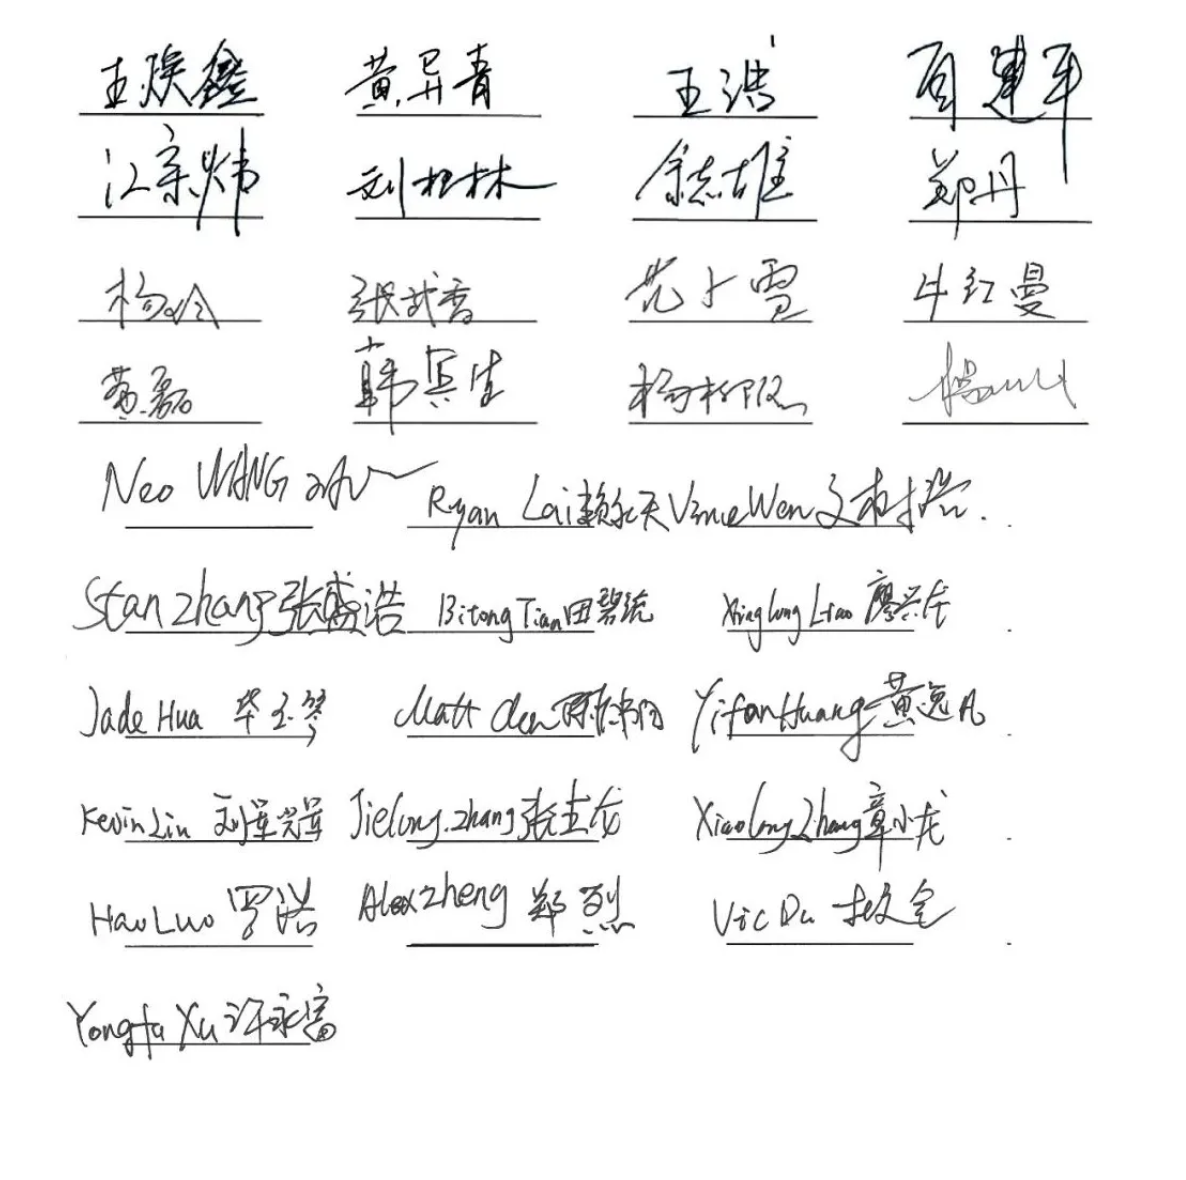 王 鑫 黄异青 王浩 建军
江宗炜 刘桂林 余志雄 郑丹
杨 张武香 花卜雪 牛红曼
黄磊 韩兵生 杨柳 杨
Neo WANG Ryan Lai 赖 天 Vince Wen 文 浩
Stan Zhang 张盛浩 Bitong Tian 田碧 Xinglong Liao 廖兴龙
Jade Hua 华玉琴 Matt Chen 陈 Yifan Huang 黄逸凡
Kevin Liu 刘 Jielong.zhang 张杰龙 Xiaolong Zhang 章小龙
Hao Luo 罗浩 Alex zheng 郑烈 Vic Du
Yongfu Xu 许永富